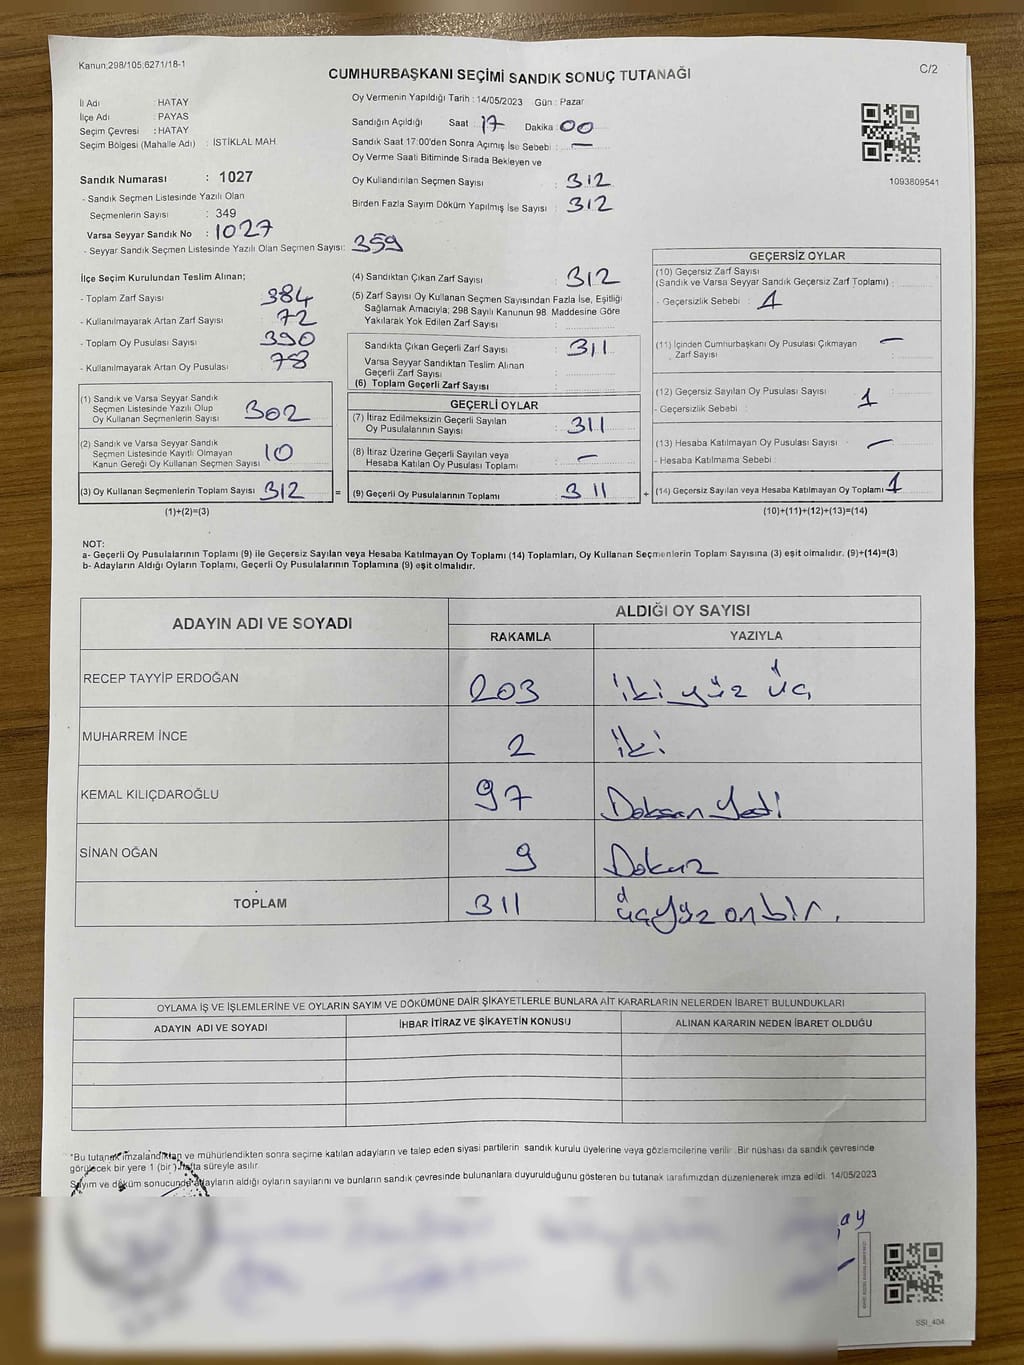 Kanun:298/105,6271/18-1
CUMHURBAŞKANI SEÇİMİ SANDIK SONUÇ TUTANAĞI
C/2
İl Adı : HATAY
İlçe Adı : PAYAS
Seçim Çevresi : HATAY
Seçim Bölgesi (Mahalle Adı) : İSTİKLAL MAH
Oy Vermenin Yapıldığı Tarih : 14/05/2023 Gün : Pazar
Sandığın Açıldığı Saat : 17 Dakika : 00
Sandık Saat 17:00'den Sonra Açımış İse Sebebi : —
Oy Verme Saati Bitiminde Sırada Bekleyen ve
Oy Kullandırılan Seçmen Sayısı : 312
Birden Fazla Sayım Döküm Yapılmış İse Sayısı : 312
1093809541
Sandık Numarası : 1027
- Sandık Seçmen Listesinde Yazılı Olan
Seçmenlerin Sayısı : 349
Varsa Seyyar Sandık No : 1027
- Seyyar Sandık Seçmen Listesinde Yazılı Olan Seçmen Sayısı: 359
İlçe Seçim Kurulundan Teslim Alınan;
- Toplam Zarf Sayısı 384
- Kullanılmayarak Artan Zarf Sayısı : 72
- Toplam Oy Pusulası Sayısı : 390
- Kullanılmayarak Artan Oy Pusulası : 78
(1) Sandık ve Varsa Seyyar Sandık
Seçmen Listesinde Yazılı Olup
Oy Kullanan Seçmenlerin Sayısı : 302
(2) Sandık ve Varsa Seyyar Sandık
Seçmen Listesinde Kayıtlı Olmayan
Kanun Gereği Oy Kullanan Seçmen Sayısı : 10
(3) Oy Kullanan Seçmenlerin Toplam Sayısı : 312
(1)+(2)=(3)
(4) Sandıktan Çıkan Zarf Sayısı : 312
(5) Zarf Sayısı Oy Kullanan Seçmen Sayısından Fazla İse, Eşitliği
Sağlamak Amacıyla; 298 Sayılı Kanunun 98 Maddesine Göre
Yakılarak Yok Edilen Zarf Sayısı :
Sandıkta Çıkan Geçerli Zarf Sayısı : 311
Varsa Seyyar Sandıktan Teslim Alınan
Geçerli Zarf Sayısı :
(6) Toplam Geçerli Zarf Sayısı :
GEÇERLİ OYLAR
(7) İtiraz Edilmeksizin Geçerli Sayılan
Oy Pusulalarının Sayısı : 311
(8) İtiraz Üzerine Geçerli Sayılan veya
Hesaba Katılan Oy Pusulası Toplamı : —
= (9) Geçerli Oy Pusulalarının Toplamı : 311
GEÇERSİZ OYLAR
(10) Geçersiz Zarf Sayısı
(Sandık ve Varsa Seyyar Sandık Geçersiz Zarf Toplamı) :
- Geçersizlik Sebebi : 1
(11) İçinden Cumhurbaşkanı Oy Pusulası Çıkmayan —
Zarf Sayısı :
(12) Geçersiz Sayılan Oy Pusulası Sayısı : 1
- Geçersizlik Sebebi :
(13) Hesaba Katılmayan Oy Pusulası Sayısı : —
- Hesaba Katılmama Sebebi :
+ (14) Geçersiz Sayılan veya Hesaba Katılmayan Oy Toplamı : 1
(10)+(11)+(12)+(13)=(14)
NOT:
a- Geçerli Oy Pusulalarının Toplamı (9) ile Geçersiz Sayılan veya Hesaba Katılmayan Oy Toplamı (14) Toplamları, Oy Kullanan Seçmenlerin Toplam Sayısına (3) eşit olmalıdır. (9)+(14)=(3)
b- Adayların Aldığı Oyların Toplamı, Geçerli Oy Pusulalarının Toplamına (9) eşit olmalıdır.
ADAYIN ADI VE SOYADI
ALDIĞI OY SAYISI
RAKAMLA YAZIYLA
RECEP TAYYİP ERDOĞAN 203 iki yüz üç
MUHARREM İNCE 2 iki
KEMAL KILIÇDAROĞLU 97 Doksan Yedi
SİNAN OĞAN 9 Dokuz
TOPLAM 311 üçyüz onbir.
OYLAMA İŞ VE İŞLEMLERİNE VE OYLARIN SAYIM VE DÖKÜMÜNE DAİR ŞİKAYETLERLE BUNLARA AİT KARARLARIN NELERDEN İBARET BULUNDUKLARI
ADAYIN ADI VE SOYADI İHBAR İTİRAZ VE ŞİKAYETİN KONUSU ALINAN KARARIN NEDEN İBARET OLDUĞU
"Bu tutanak imzalandıktan ve mühürlendikten sonra seçime katılan adayların ve talep eden siyasi partilerin sandık kurulu üyelerine veya gözlemcilerine verilir. Bir nüshası da sandık çevresinde
görülecek bir yere 1 (bir) hafta süreyle asılır.
Sayım ve döküm sonucunda adayların aldığı oyların sayılarını ve bunların sandık çevresinde bulunanlara duyurulduğunu gösteren bu tutanak tarafımızdan düzenlenerek imza edildi. 14/05/2023
ay
SSI_404